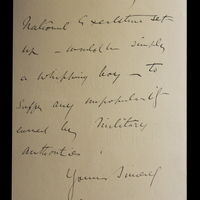 National Executive set
up – would be simply
a whipping boy – to
suffer any unpopularity
earned by Military
authorities.
Yours sincerely